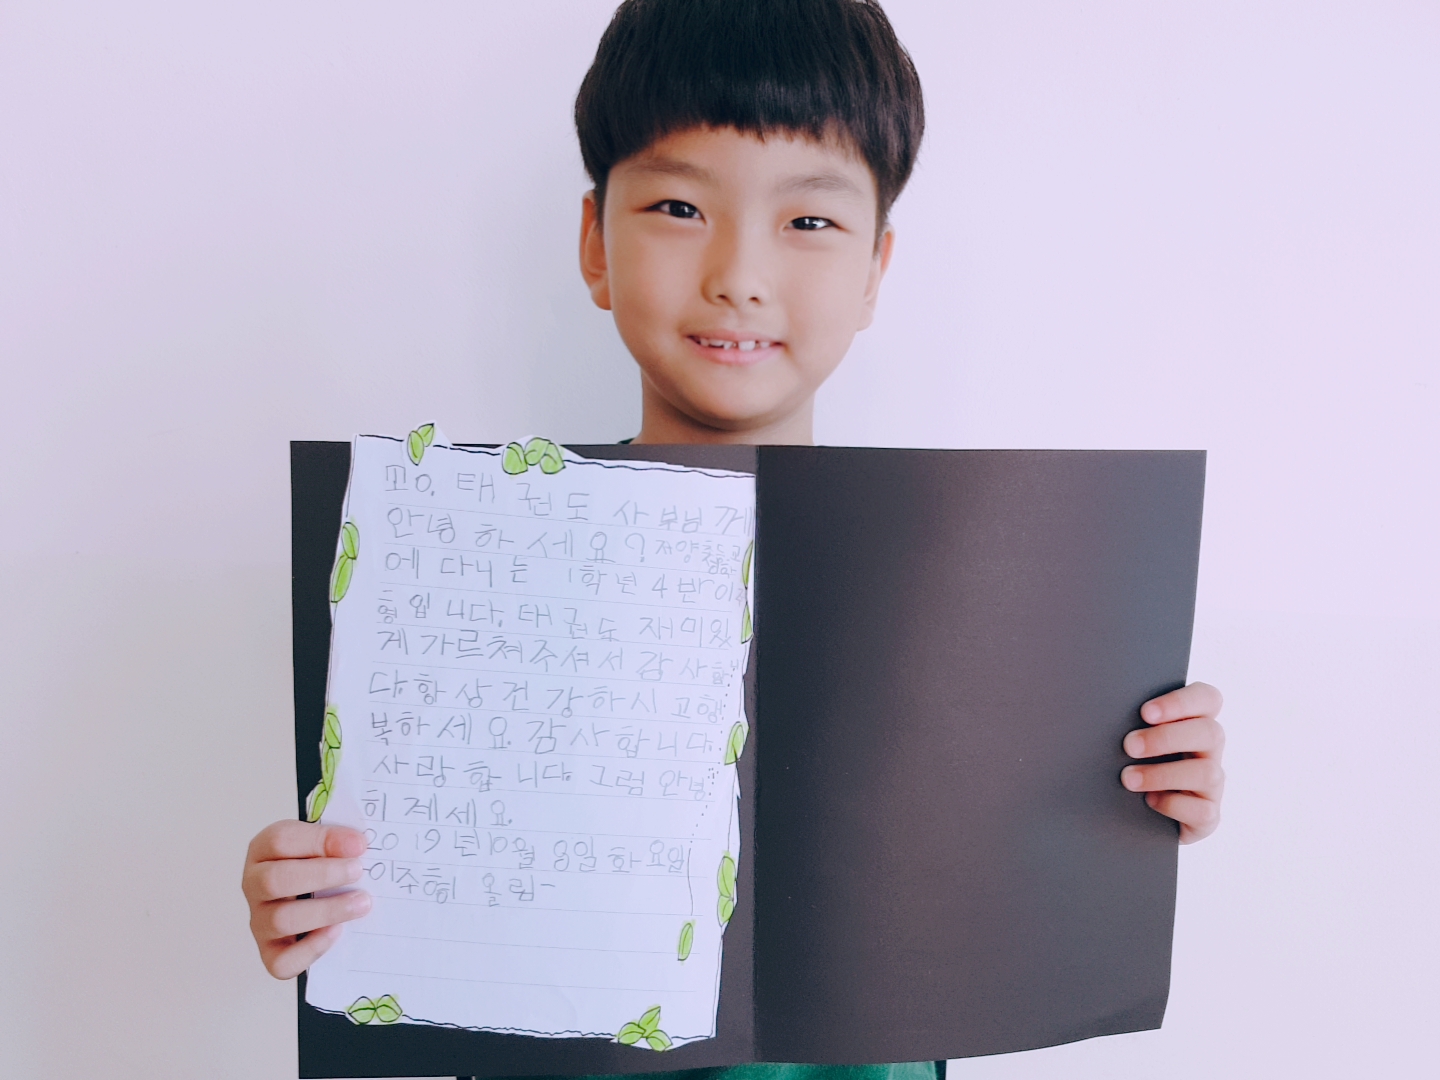 꼬o. 태 권 도 사 부님 께
안녕 하 세 요? 자양초등교
에 다니 는 1학년 4반 이주
형입니다. 태권도 재미있
게 가르쳐주셔서 감사합니
다. 항상 건강하시고 행
복하세요. 감사합니다.
사랑합니다. 그럼 안녕
히 계세요.
2019년 10월 8일 화요일
-이주형 올림-